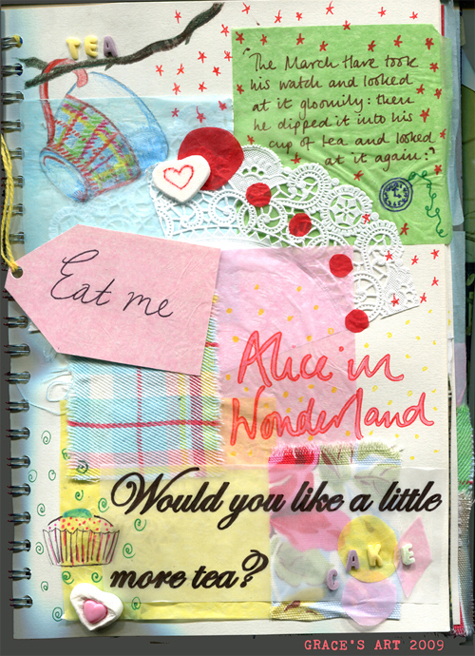 TEA
"The March Hare took
his watch and looked
at it gloomily: then
he dipped it into his
cup of tea and looked
at it again:"
Eat me
Alice in
Wonderland
Would you like a little
more tea?
CAKE
GRACE'S ART 2009